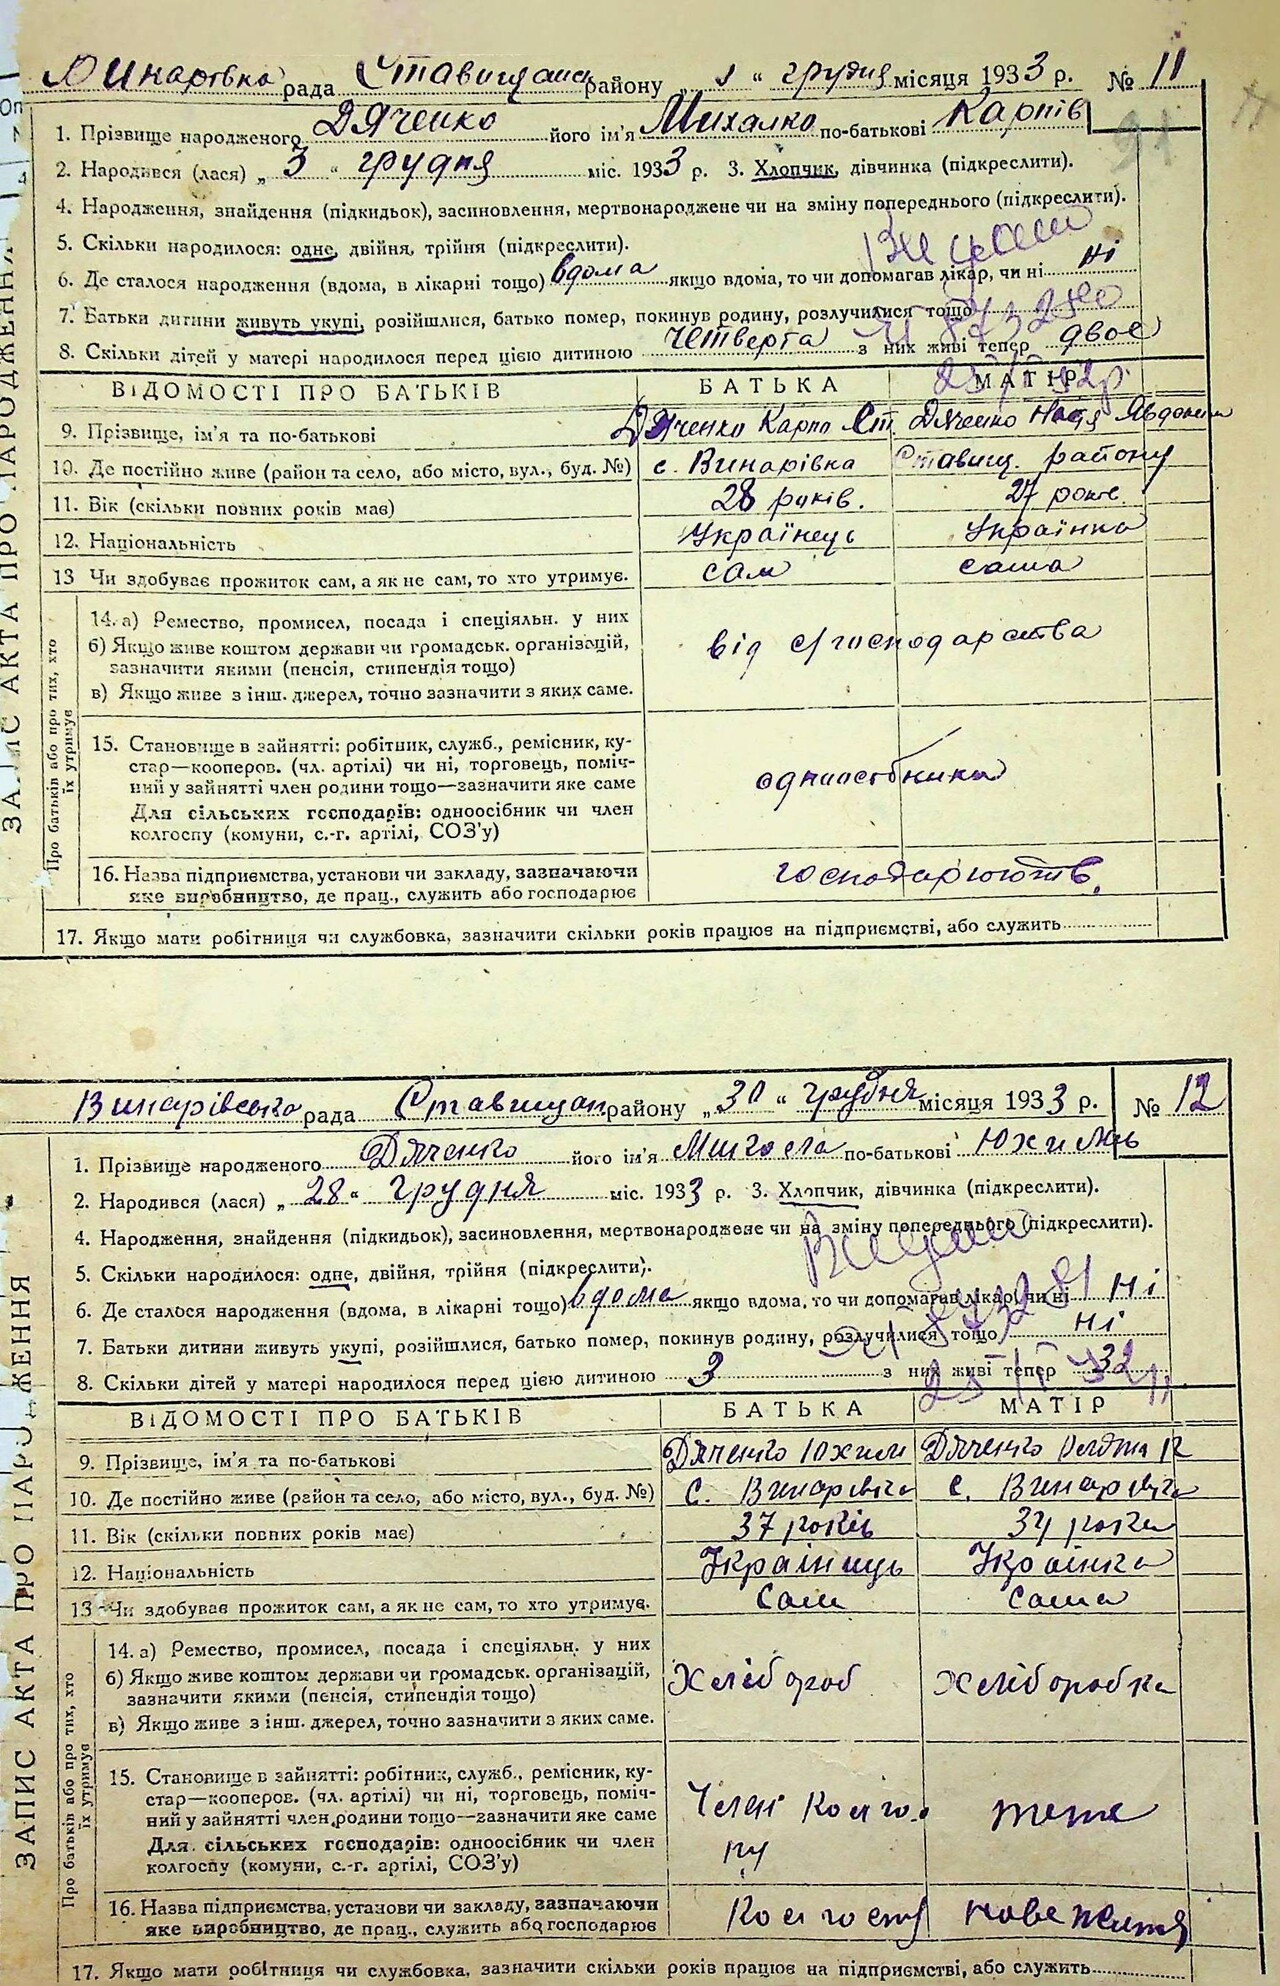 Винарівка рада Ставищанск району „ 1 “ грудня місяця 1933 р. № 11
1. Прізвище народженого Дяченко його ім'я Михалко по-батькові Карпів
91
2. Народився (лася) „ 3 “ грудня міс. 1933 р. 3. Хлопчик, дівчинка (підкреслити).
4. Народження, знайдення (підкидьок), засиновлення, мертвонароджене чи на зміну попереднього (підкреслити).
5. Скільки народилося: одне, двійня, трійня (підкреслити).
6. Де сталося народження (вдома, в лікарні тощо) вдома якщо вдома, то чи допомагав лікар, чи ні ні
7. Батьки дитини живуть укупі, розійшлися, батько помер, покинув родину, розлучилися тощо
8. Скільки дітей у матері народилося перед цією дитиною четверта з них живі тепер двоє
ВІДОМОСТІ ПРО БАТЬКІВ БАТЬКА МАТІР
9. Прізвище, ім'я та по-батькові Дяченко Карпо Ст. Дяченко Настя
10. Де постійно живе (район та село, або місто, вул., буд. №) с. Винарівка Ставищ. району
11. Вік (скільки повних років має) 28 років. 27 років.
12. Національність Українець Українка
13 Чи здобуває прожиток сам, а як не сам, то хто утримує. сам сама
Про батьків або про тих, хто їх утримує
14. а) Ремество, промисел, посада і спеціяльн. у них
б) Якщо живе коштом держави чи громадськ. організацій, зазначити якими (пенсія, стипендія тощо)
від с/господарства
в) Якщо живе з інш. джерел, точно зазначити з яких саме.
15. Становище в зайнятті: робітник, служб., ремісник, ку-
стар—кооперов. (чл. артілі) чи ні, торговець, поміч-
ний у зайнятті член родини тощо—зазначити яке саме
одноосібники
Для сільських господарів: одноосібник чи член
колгоспу (комуни, с.-г. артілі, СОЗ'у)
16. Назва підприємства, установи чи закладу, зазначаючи
яке виробництво, де прац., служить або господарює
господарюють.
17. Якщо мати робітниця чи службовка, зазначити скільки років працює на підприємстві, або служить
ЗАПИС АКТА ПРО НАРОДЖЕННЯ
Винарівська рада Ставищан району „ 30 “ грудня місяця 1933 р. № 12
1. Прізвище народженого Дяченко його ім'я Микола по-батькові Юхимів
2. Народився (лася) „ 28 “ грудня міс. 1933 р. 3. Хлопчик, дівчинка (підкреслити).
4. Народження, знайдення (підкидьок), засиновлення, мертвонароджене чи на зміну попереднього (підкреслити).
5. Скільки народилося: одне, двійня, трійня (підкреслити).
6. Де сталося народження (вдома, в лікарні тощо) вдома якщо вдома, то чи допомагав лікар, чи ні ні
7. Батьки дитини живуть укупі, розійшлися, батько помер, покинув родину, розлучилися тощо ні
8. Скільки дітей у матері народилося перед цією дитиною 3 з них живі тепер
ВІДОМОСТІ ПРО БАТЬКІВ БАТЬКА МАТІР
9. Прізвище, ім'я та по-батькові Дяченко Юхим Дяченко
10. Де постійно живе (район та село, або місто, вул., буд. №) с. Винарівка с. Винарівка
11. Вік (скільки повних років має) 37 років 34 роки
12. Національність Українець Українка
13 Чи здобуває прожиток сам, а як не сам, то хто утримує. сам сама
Про батьків або про тих, хто їх утримує
14. а) Ремество, промисел, посада і спеціяльн. у них
б) Якщо живе коштом держави чи громадськ. організацій, зазначити якими (пенсія, стипендія тощо)
Хлібороб Хліборобка
в) Якщо живе з інш. джерел, точно зазначити з яких саме.
15. Становище в зайнятті: робітник, служб., ремісник, ку-
стар—кооперов. (чл. артілі) чи ні, торговець, поміч-
ний у зайнятті член родини тощо—зазначити яке саме
Член колго.
Для сільських господарів: одноосібник чи член
колгоспу (комуни, с.-г. артілі, СОЗ'у)
16. Назва підприємства, установи чи закладу, зазначаючи
яке виробництво, де прац., служить або господарює
Колгосп нове життя
17. Якщо мати робітниця чи службовка, зазначити скільки років працює на підприємстві, або служить
ЗАПИС АКТА ПРО НАРОДЖЕННЯ